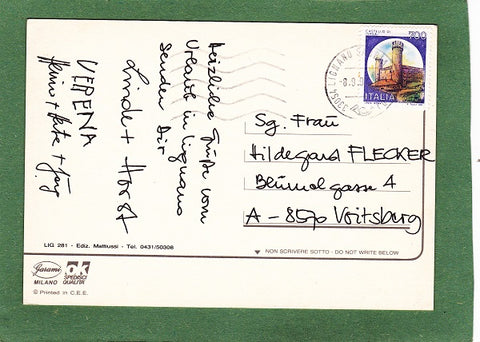 Herzliche Grüße vom
Urlaub in Lignano
senden Dir
Linde + Horst
VERENA
CASTELLO DI
700
ITALIA
LIGNANO
Sg. Frau
Hildegard FLECKER
Blümelgasse 4
A - 8570 Voitsberg
LIG 281 - Ediz. Mattiussi - Tel. 0431/50308
NON SCRIVERE SOTTO - DO NOT WRITE BELOW
Garami
MILANO
OK
SPEDISCI
QUALITÀ
© Printed in C.E.E.